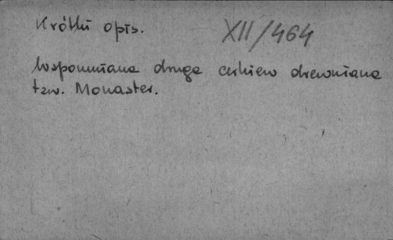 Krótki opis.
XII/464
Wspomniana druga cerkiew drewniana
tzw. Monaster.